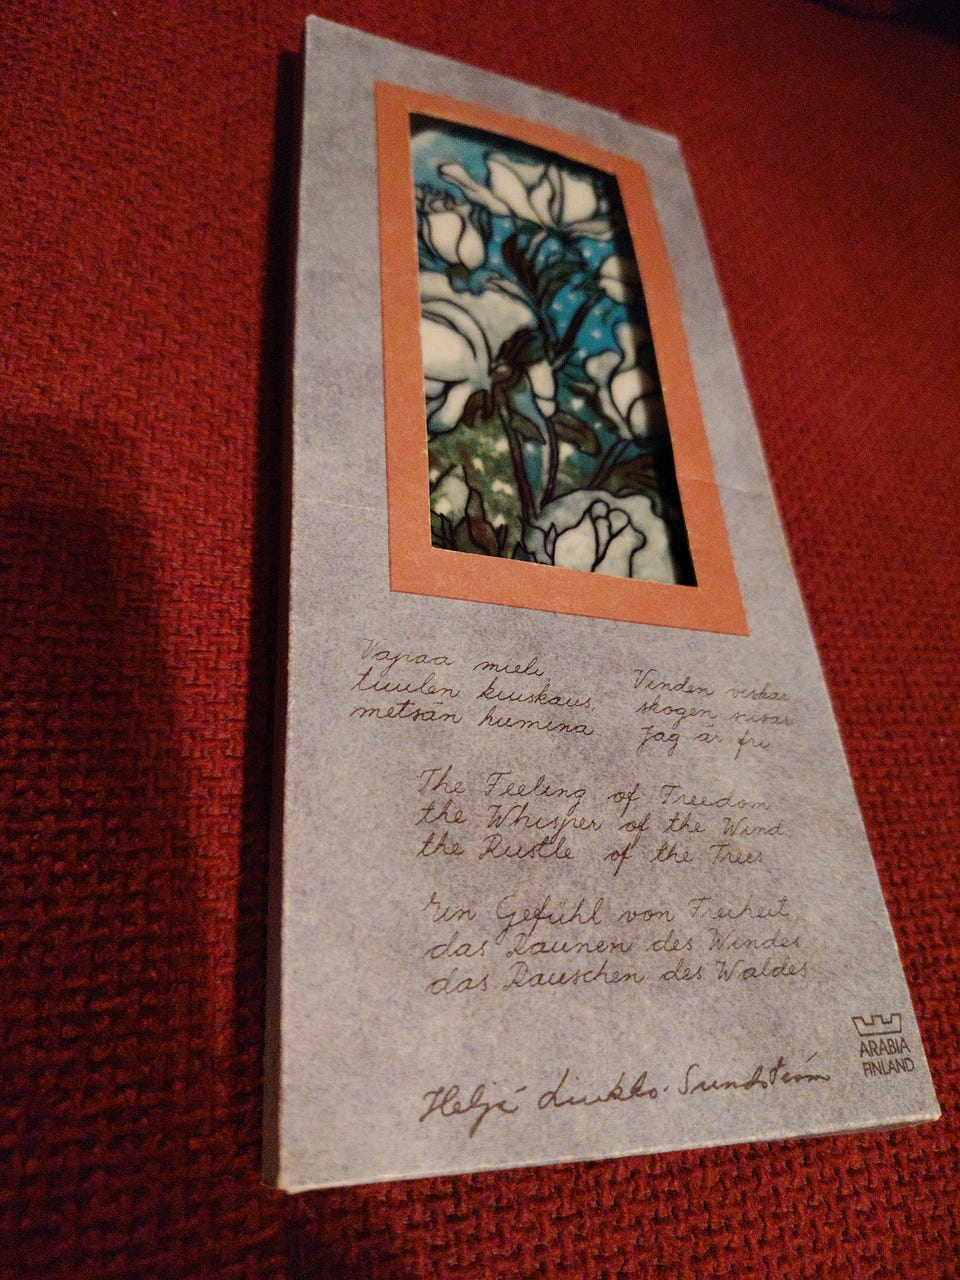 Vapaa mieli,
tuulen kuiskaus,
metsän humina
Vinden viskar
skogen susar
Jag är fri
The Feeling of Freedom
the Whisper of the Wind
the Rustle of the Trees
Ein Gefühl von Freiheit,
das Raunen des Windes
das Rauschen des Waldes
Heljä Liukko-Sundström
ARABIA
FINLAND